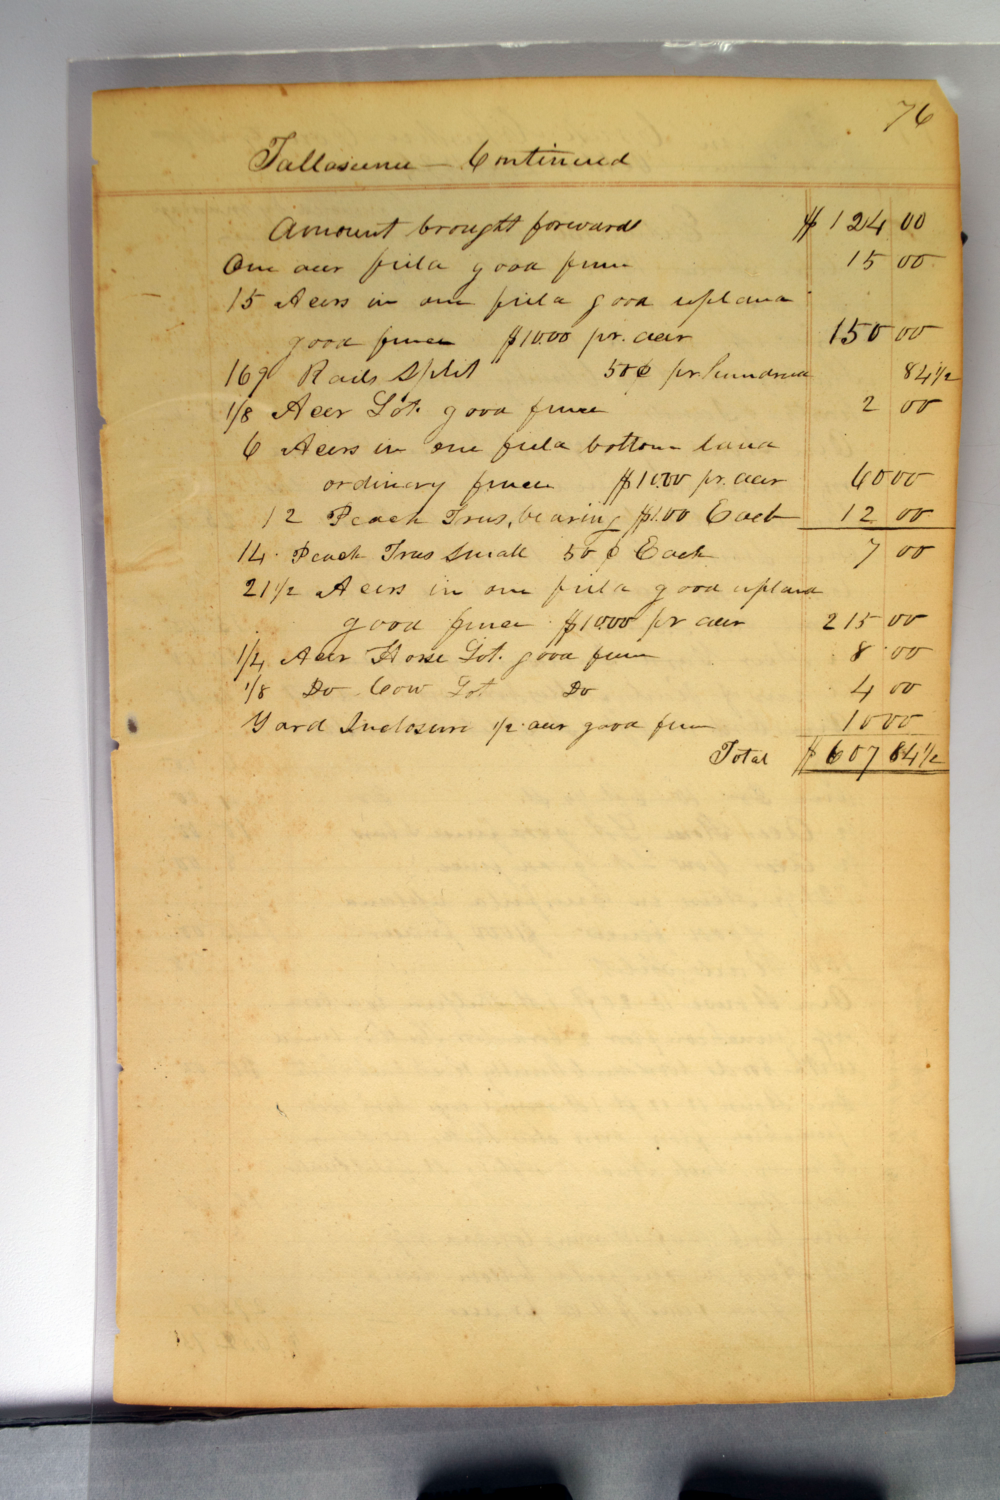 76
Tallaseena — Continued
Amount brought forward $124 00
One acer field good fence 15 00
15 Acers in one field good upland
good fence $10.00 pr. acer 150 00
169 Rails Split 50¢ pr hundred 84 1/2
1/8 Acer Lot. good fence 2 00
6 Acers in one field bottom land
ordinery fence $10.00 pr. acer 60 00
12 Peach Trees, bearing $1.00 Each 12 00
14 Peach Trees Small 50¢ Each 7 00
21 1/2 Acers in one field good upland
good fence $10.00 pr acer 215 00
1/4 Acer Horse Lot. good fence 8 00
1/8 Do Cow Lot Do 4 00
Yard Inclosure 1/2 acer good fence 10 00
Total $607 84 1/2